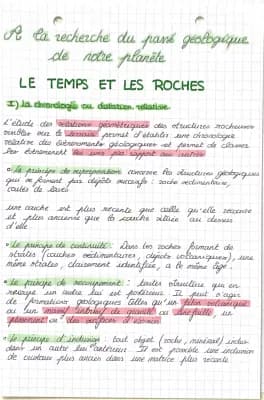 A la recherche du passé géologique
de notre planète
LE TEMPS ET LES ROCHES
I) la chronologie ou datation relative
L'étude des relations géométriques des structures rocheuses
visibles sur le terrain permet d'établir une chronologie
relative des évènements géologiques et permet de classer
les évènements les uns par rapport aux autres
• le principe de superposition concerne les structures géologiques
qui se forment par dépôts successifs : roche sédimentaire,
coulée de laves
une couche est plus récente que celle qu'elle recouvre
et plus ancienne que la couche située au dessus
d'elle
• le principe de continuité : Dans les roches formant des
strates (couches sédimentaires, dépôts volcaniques), une
même strate, clairement identifiée, a le même âge.
• le principe de recoupement : toutes structure qui en
recoupe un autre lui est postérieur. Il peut s'agir
de formations géologiques telles qu'un filon volcanique
ou un massif intrusif de granite ou une faille, un
plissement ou des surfaces d'érosion
• le principe d'inclusion : tout objet (roche, minéral) inclus
dans un autre lui est antérieur. Il est possible une inclusion
de cristaux plus ancien dans une matrice plus récente